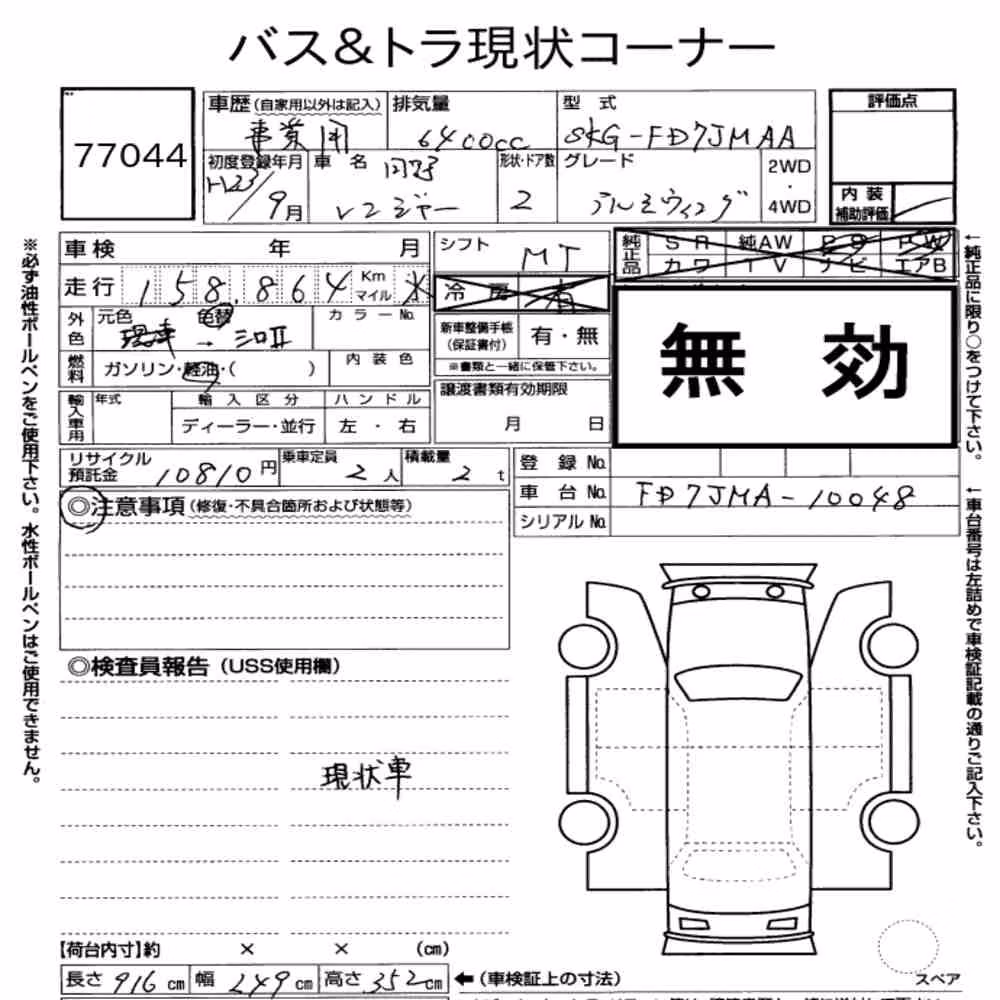 バス&トラ現状コーナー
77044
車歴(自家用以外は記入) 事業用
排気量 6400cc
型式 SKG-FD7JMAA
評価点
初度登録年月 H23/9月
車名 日野 レンジャー
形状・ドア数 2
グレード アルミウィング
2WD・4WD
内装補助評価
車検 年 月
シフト MT
純正品 SR 純AW PS PW
カワ TV ナビ エアB
走行 158.864 Km マイル
冷房 有
外色 元色 現車 → 色替 シロII
カラーNo.
新車整備手帳(保証書付) 有・無
※書類と一緒に保管下さい。
無効
燃料 ガソリン・軽油・( )
内装色
輸入車用 年式
輸入区分 ディーラー・並行
ハンドル 左・右
譲渡書類有効期限 月 日
リサイクル預託金 10810円
乗車定員 2人
積載量 2t
登録No.
車台No. FD7JMA-10048
シリアルNo.
◎注意事項(修復・不具合箇所および状態等)
◎検査員報告(USS使用欄)
現状車
【荷台内寸】約 × × (cm)
長さ 916cm 幅 249cm 高さ 352cm
←(車検証上の寸法)
スペア
※必ず油性ボールペンをご使用下さい。水性ボールペンはご使用できません。
←純正品に限り○をつけて下さい。
←車台番号は左詰めで車検証記載の通りご記入下さい。